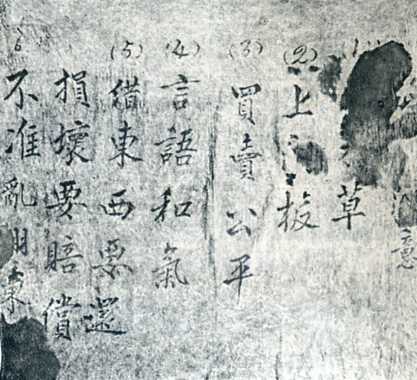 草
(2) 上板
(3) 買賣公平
(4) 言語和氣
(5) 借東西要還
損壞要賠償
不准亂